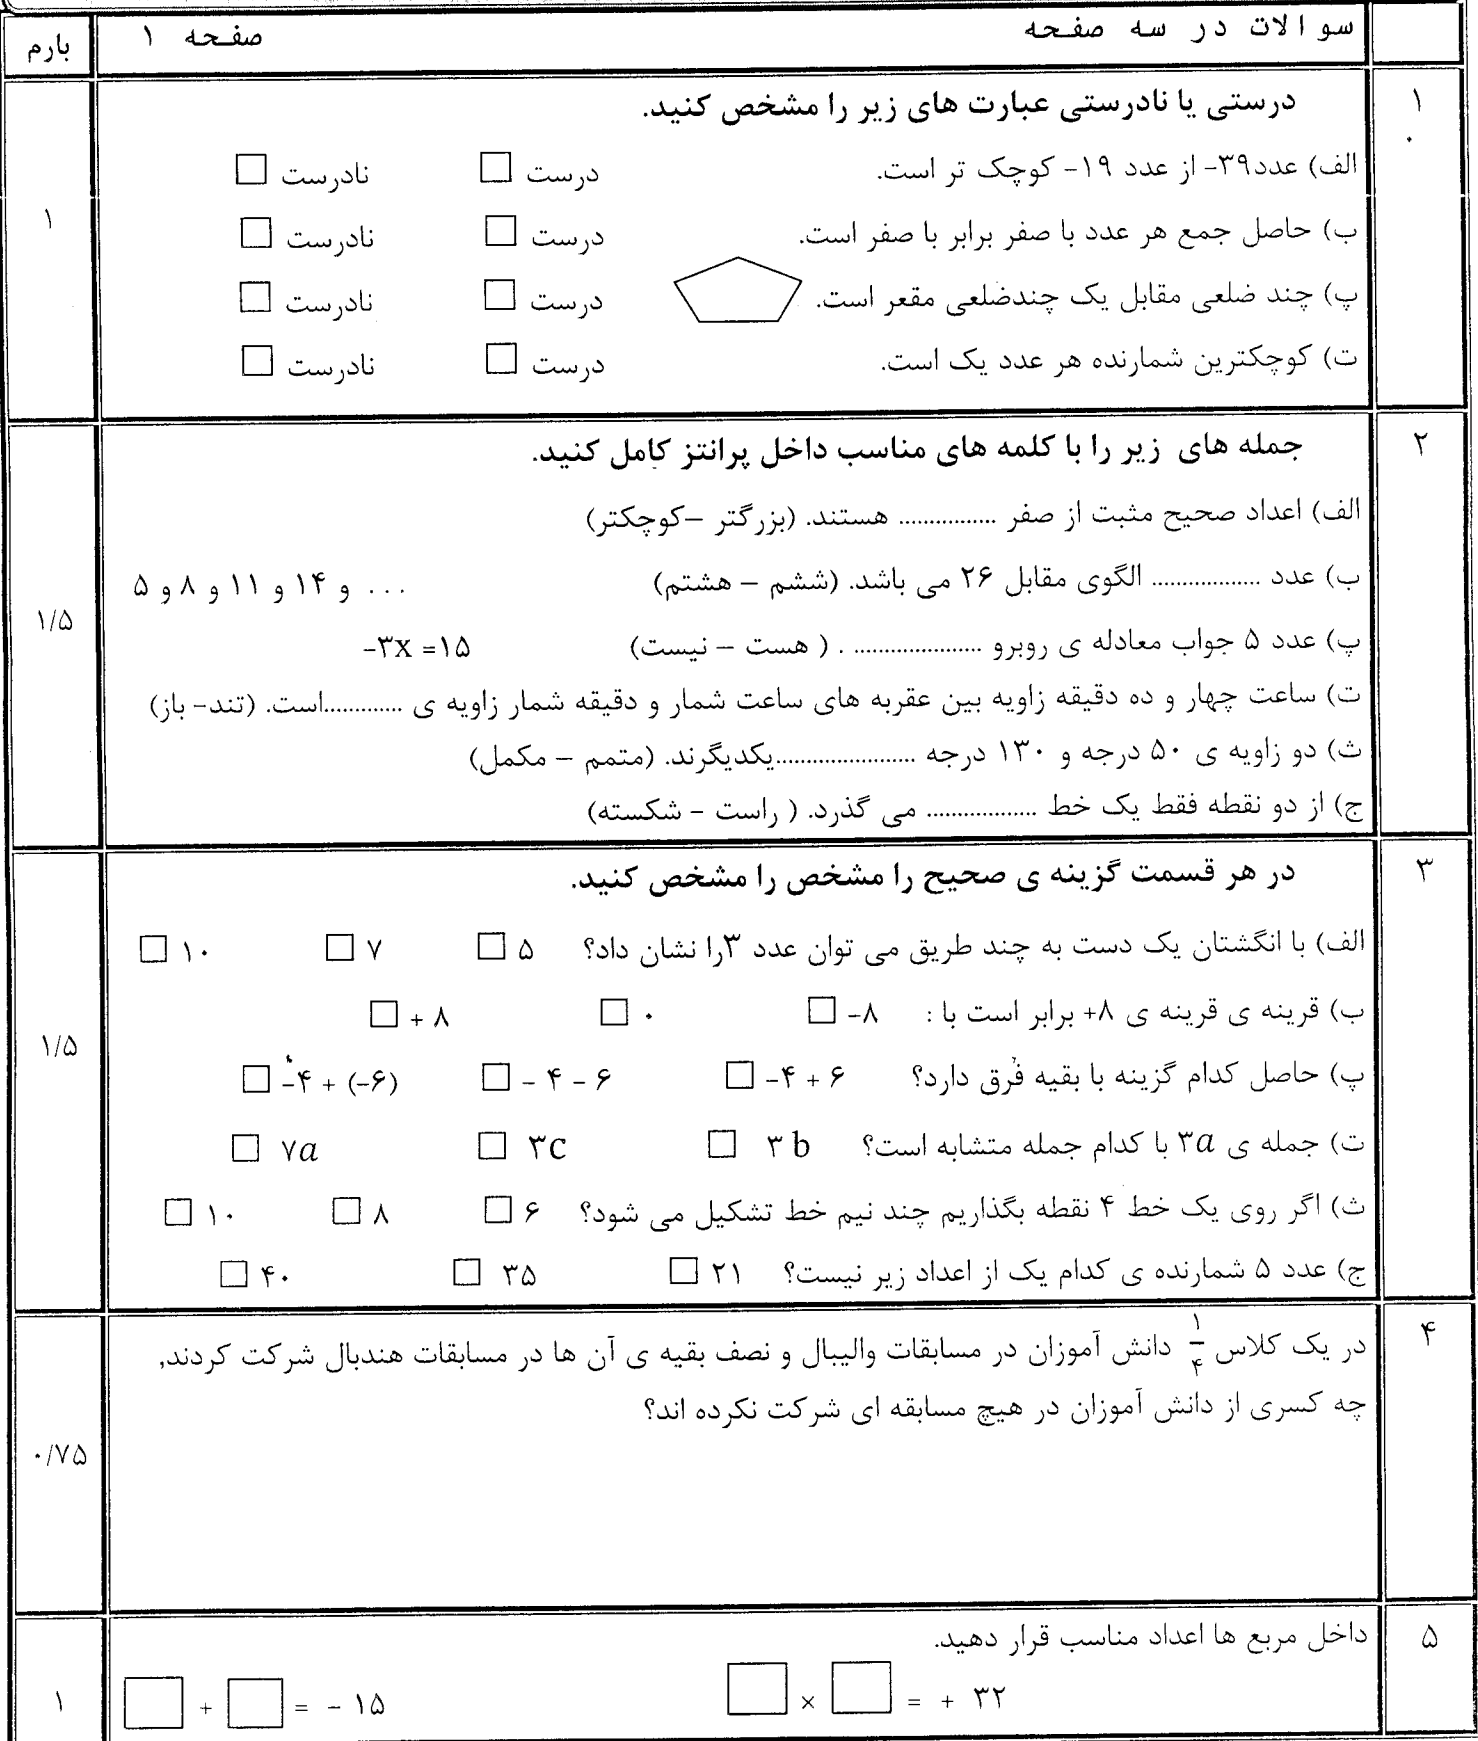 سوالات در سه صفحه صفحه ۱ بارم
۱. درستی یا نادرستی عبارت های زیر را مشخص کنید. ۱
الف) عدد۳۹- از عدد ۱۹- کوچک تر است. درست □ نادرست □
ب) حاصل جمع هر عدد با صفر برابر با صفر است. درست □ نادرست □
پ) چند ضلعی مقابل یک چندضلعی مقعر است. درست □ نادرست □
ت) کوچکترین شمارنده هر عدد یک است. درست □ نادرست □
۲ جمله های زیر را با کلمه های مناسب داخل پرانتز کامل کنید. ۱/۵
الف) اعداد صحیح مثبت از صفر ................ هستند. (بزرگتر –کوچکتر)
ب) عدد .................. الگوی مقابل ۲۶ می باشد. (ششم – هشتم) ... و ۱۴ و ۱۱ و ۸ و ۵
پ) عدد ۵ جواب معادله ی روبرو ..................... . ( هست – نیست) -۳x =۱۵
ت) ساعت چهار و ده دقیقه زاویه بین عقربه های ساعت شمار و دقیقه شمار زاویه ی .............است. (تند- باز)
ث) دو زاویه ی ۵۰ درجه و ۱۳۰ درجه .......................یکدیگرند. (متمم – مکمل)
ج) از دو نقطه فقط یک خط .................. می گذرد. ( راست - شکسته)
۳ در هر قسمت گزینه ی صحیح را مشخص را مشخص کنید. ۱/۵
الف) با انگشتان یک دست به چند طریق می توان عدد ۳را نشان داد؟ ۵ □ ۷ □ ۱۰ □
ب) قرینه ی قرینه ی ۸+ برابر است با : -۸ □ ۰ □ +۸ □
پ) حاصل کدام گزینه با بقیه فرق دارد؟ -۴ + ۶ □ - ۴ - ۶ □ -۴ + (-۶) □
ت) جمله ی ۳a با کدام جمله متشابه است؟ ۳ b □ ۳c □ ۷a □
ث) اگر روی یک خط ۴ نقطه بگذاریم چند نیم خط تشکیل می شود؟ ۶ □ ۸ □ ۱۰ □
ج) عدد ۵ شمارنده ی کدام یک از اعداد زیر نیست؟ ۲۱ □ ۳۵ □ ۴۰ □
۴ در یک کلاس ۱/۴ دانش آموزان در مسابقات والیبال و نصف بقیه ی آن ها در مسابقات هندبال شرکت کردند,
چه کسری از دانش آموزان در هیچ مسابقه ای شرکت نکرده اند؟ ۰/۷۵
۵ داخل مربع ها اعداد مناسب قرار دهید. ۱
□ × □ = + ۳۲ □ + □ = - ۱۵